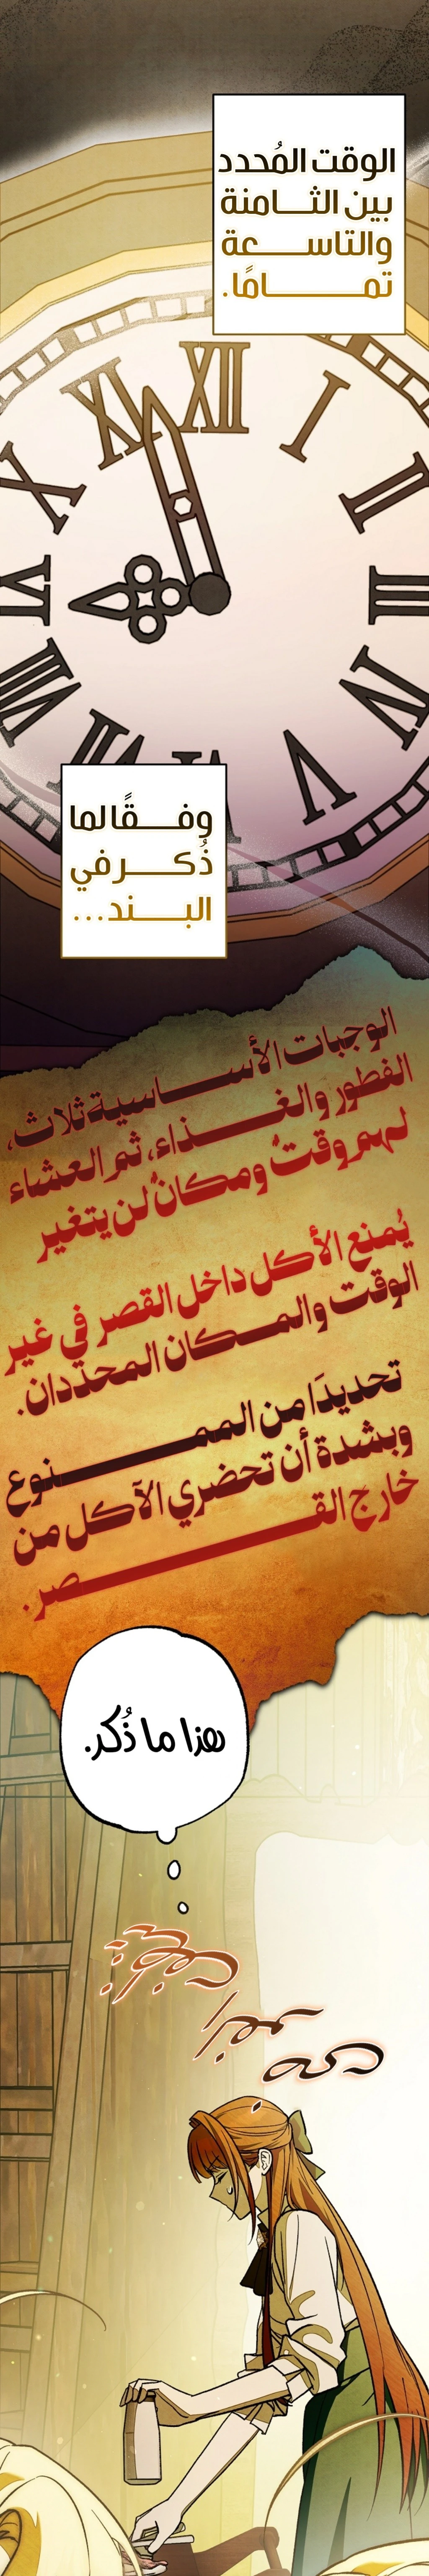 الوقت المُحدد
بين الثـامنة
والتاسـعة
تمـامًا.
XII
I
II
III
IV
V
VII
VIII
IX
X
XI
وفـقًا لما
ذُكـر في
البـند...
الوجبات الأسـاسية ثلاث،
الفطور والغـذاء، ثم العشاء
لهم وقتٌ ومكانٌ لن يتغير
يُمنع الأكل داخل القصر في غير
الوقت والمـكان المحدّدان.
تحديدًا من الممـنوع
وبشدة أن تحضري الآكل من
خارج القـصر.
هذا ما ذُكر.